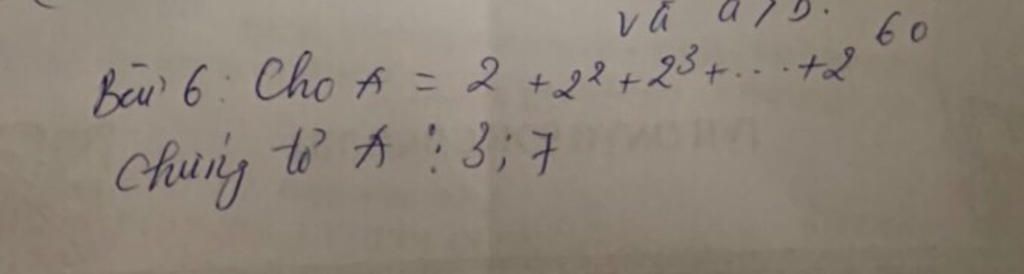 và a > b.
Bài 6: Cho A = 2 + 2² + 2³ + ... + 2⁶⁰
Chứng tỏ A ⋮ 3; 7